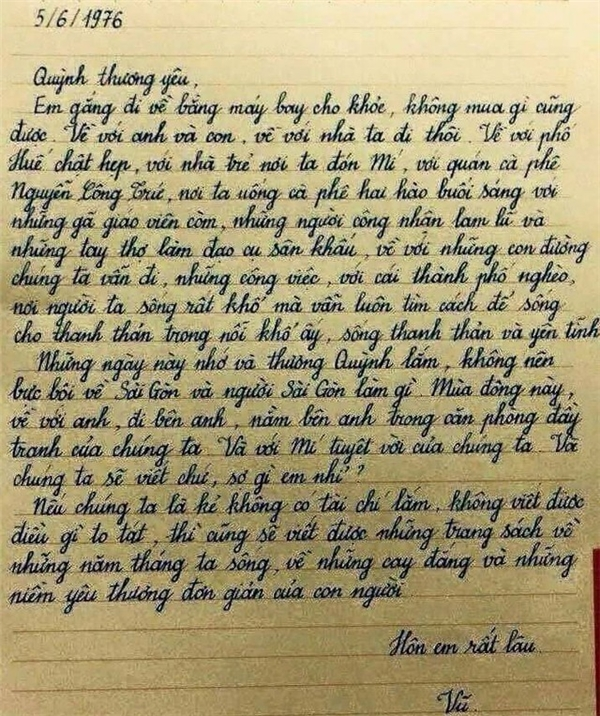 5/6/1976
Quỳnh thương yêu,
Em gắng đi về bằng máy bay cho khỏe, không mua gì cũng
được. Về với anh và con, về với nhà ta đi thôi. Về với phố
Huế chật hẹp, với nhà trẻ nơi ta đón Mí, với quán cà phê
Nguyễn Công Trứ, nơi ta uống cà phê hai hào buổi sáng với
những gã giáo viên còm, những người công nhân lam lũ và
những tay thợ làm đạo cụ sân khấu, về với những con đường
chúng ta vẫn đi, những công việc, với cái thành phố nghèo,
nơi người ta sống rất khổ mà vẫn luôn tìm cách để sống
cho thanh thản trong nỗi khổ ấy, sống thanh thản và yên tĩnh
Những ngày này nhớ và thương Quỳnh lắm, không nên
bực bội về Sài Gòn và người Sài Gòn làm gì. Mùa đông này,
về với anh, đi bên anh, nằm bên anh trong căn phòng đầy
tranh của chúng ta. Và với Mí tuyệt vời của chúng ta. Và
chúng ta sẽ viết chứ, sợ gì em nhỉ?
Nếu chúng ta là kẻ không có tài chí lắm, không viết được
điều gì to tát, thì cũng sẽ viết được những trang sách về
những năm tháng ta sống, về những cay đắng và những
niềm yêu thương đơn giản của con người
Hôn em rất lâu.
Vũ.